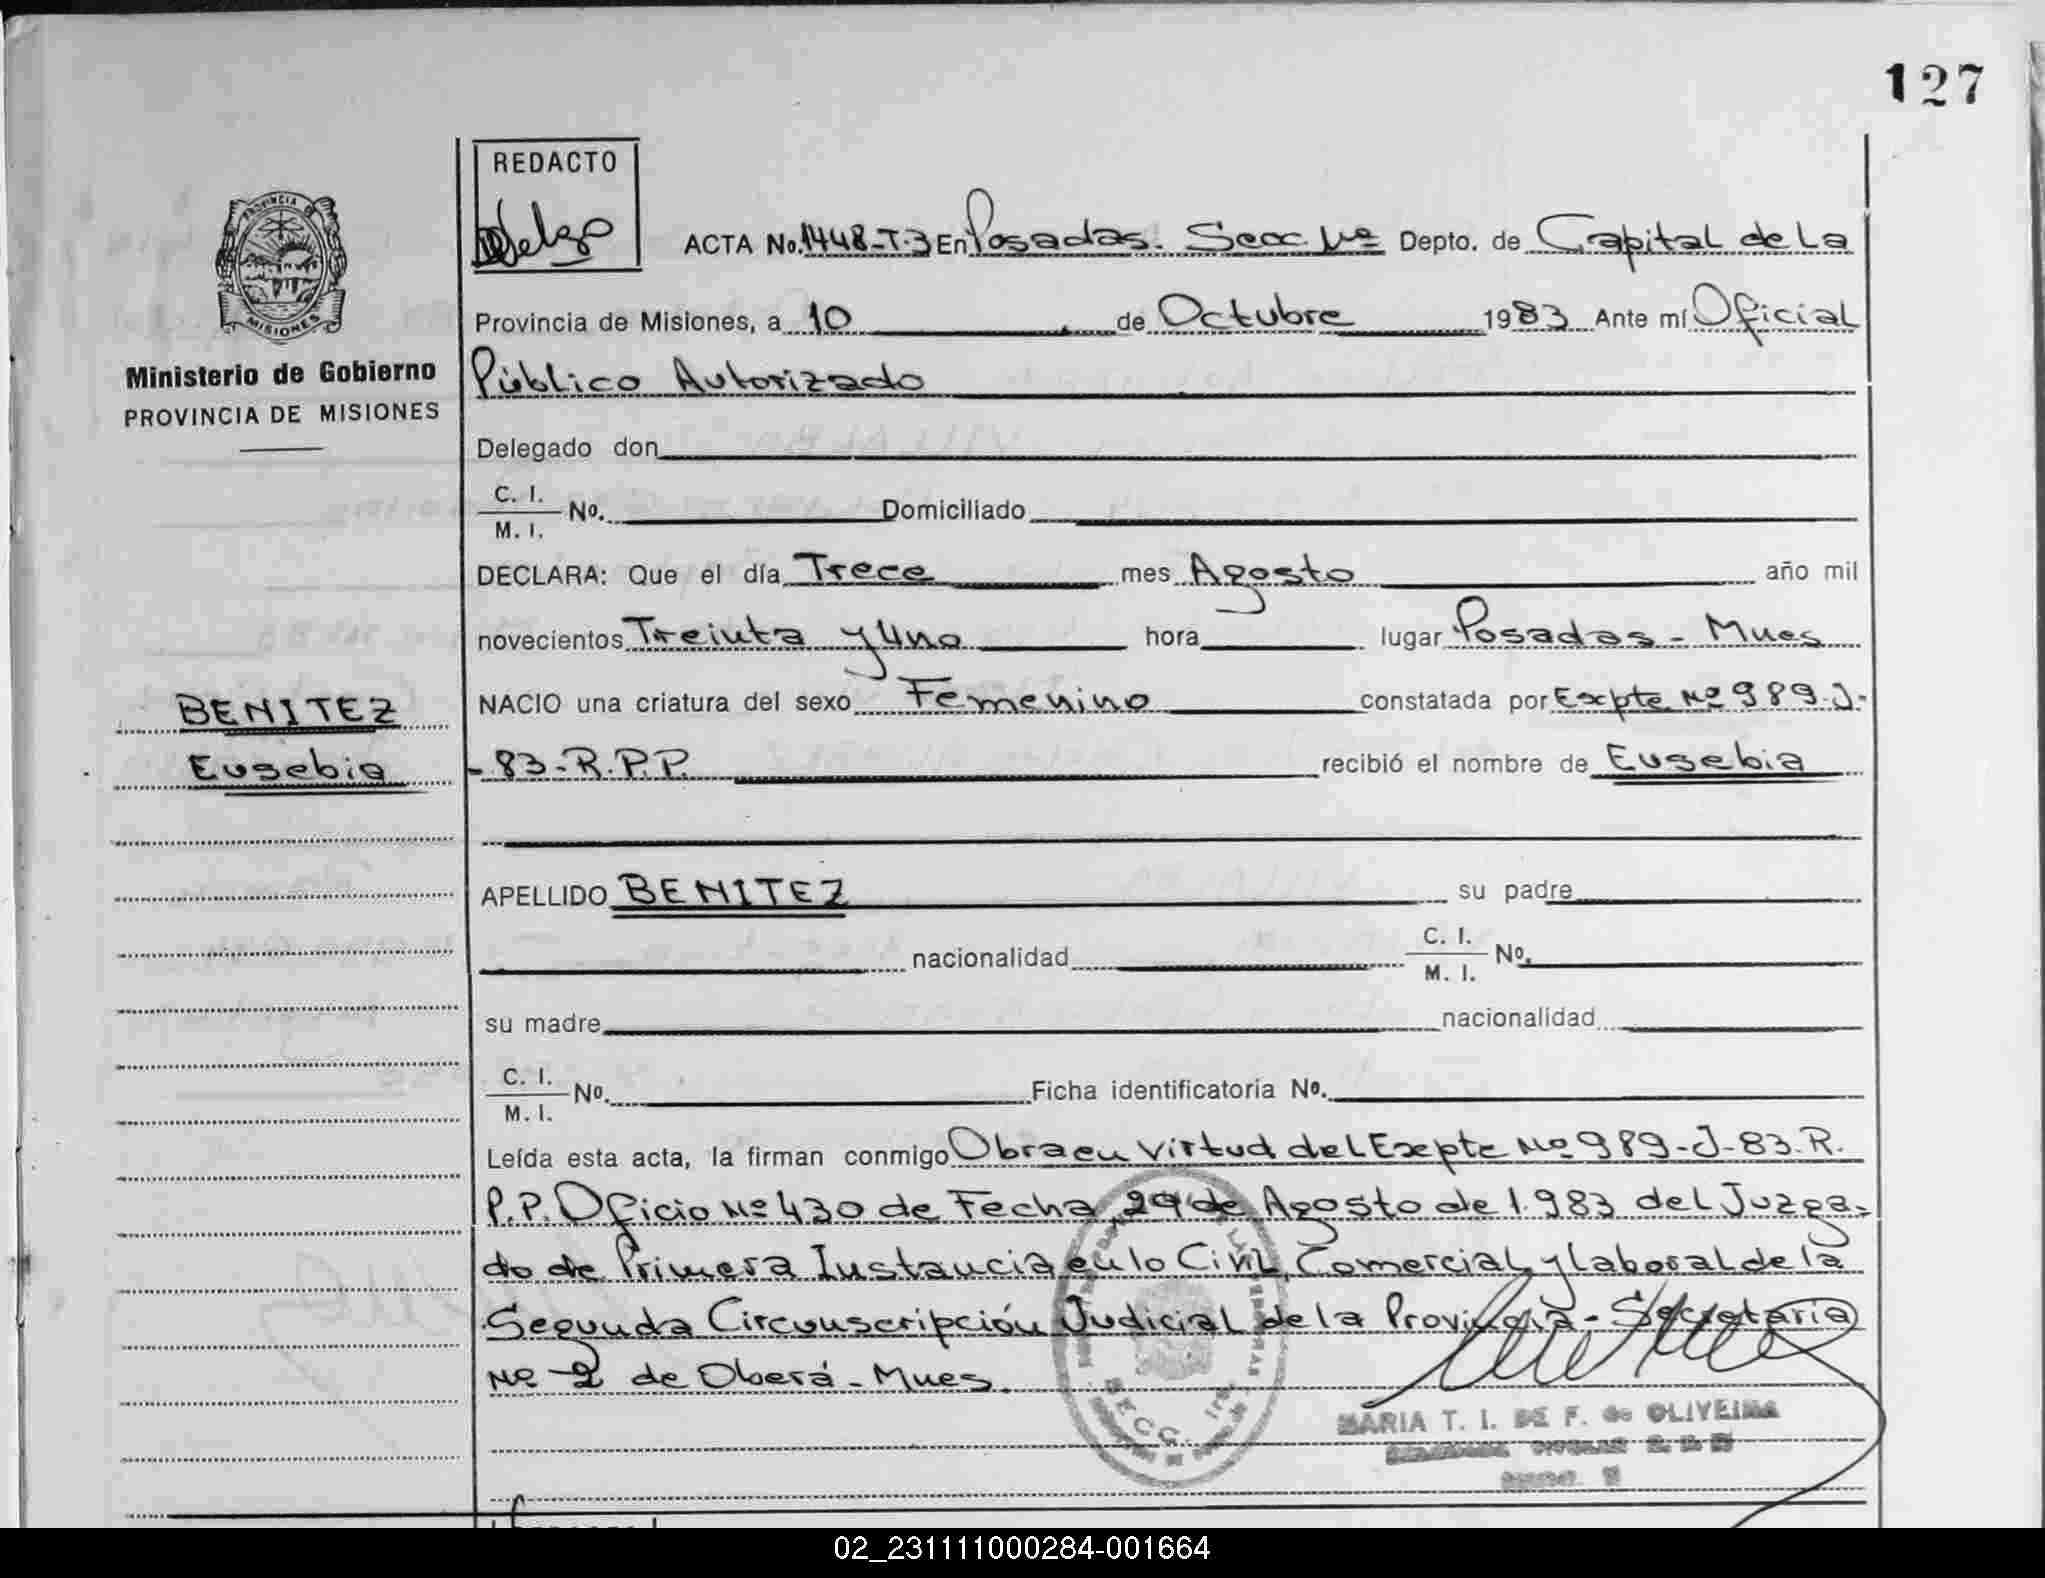 127
REDACTO
ACTA No. 1448-T-3 En Posadas. Secc. 1ra Depto. de Capital de La
Provincia de Misiones, a 10 de Octubre 1983 Ante mí Oficial
Ministerio de Gobierno
PROVINCIA DE MISIONES
Público Autorizado
Delegado don
C. I.
M. I. No. Domiciliado
DECLARA: Que el día Trece mes Agosto año mil
novecientos Treinta y Uno hora lugar Posadas - Mnes
NACIO una criatura del sexo Femenino constatada por Expte Nº 989-J-
BENITEZ
Eusebia
- 83-R.P.P. recibió el nombre de Eusebia
APELLIDO BENITEZ su padre
nacionalidad C. I.
M. I. No.
su madre nacionalidad
C. I.
M. I. No. Ficha identificatoria No.
Leída esta acta, la firman conmigo Obra en virtud del Expte Nº 989-J-83-R.
P.P. Oficio Nº 430 de Fecha 29 de Agosto de 1.983 del Juzga-
do de Primera Instancia en lo Civil, Comercial y laboral de la
Segunda Circunscripción Judicial de la Provincia - Secretaria
Nº 2 de Oberá - Mnes.
MARIA T. I. DE F. de OLIVEIRA
SECC. 1ra.
02_231111000284-001664